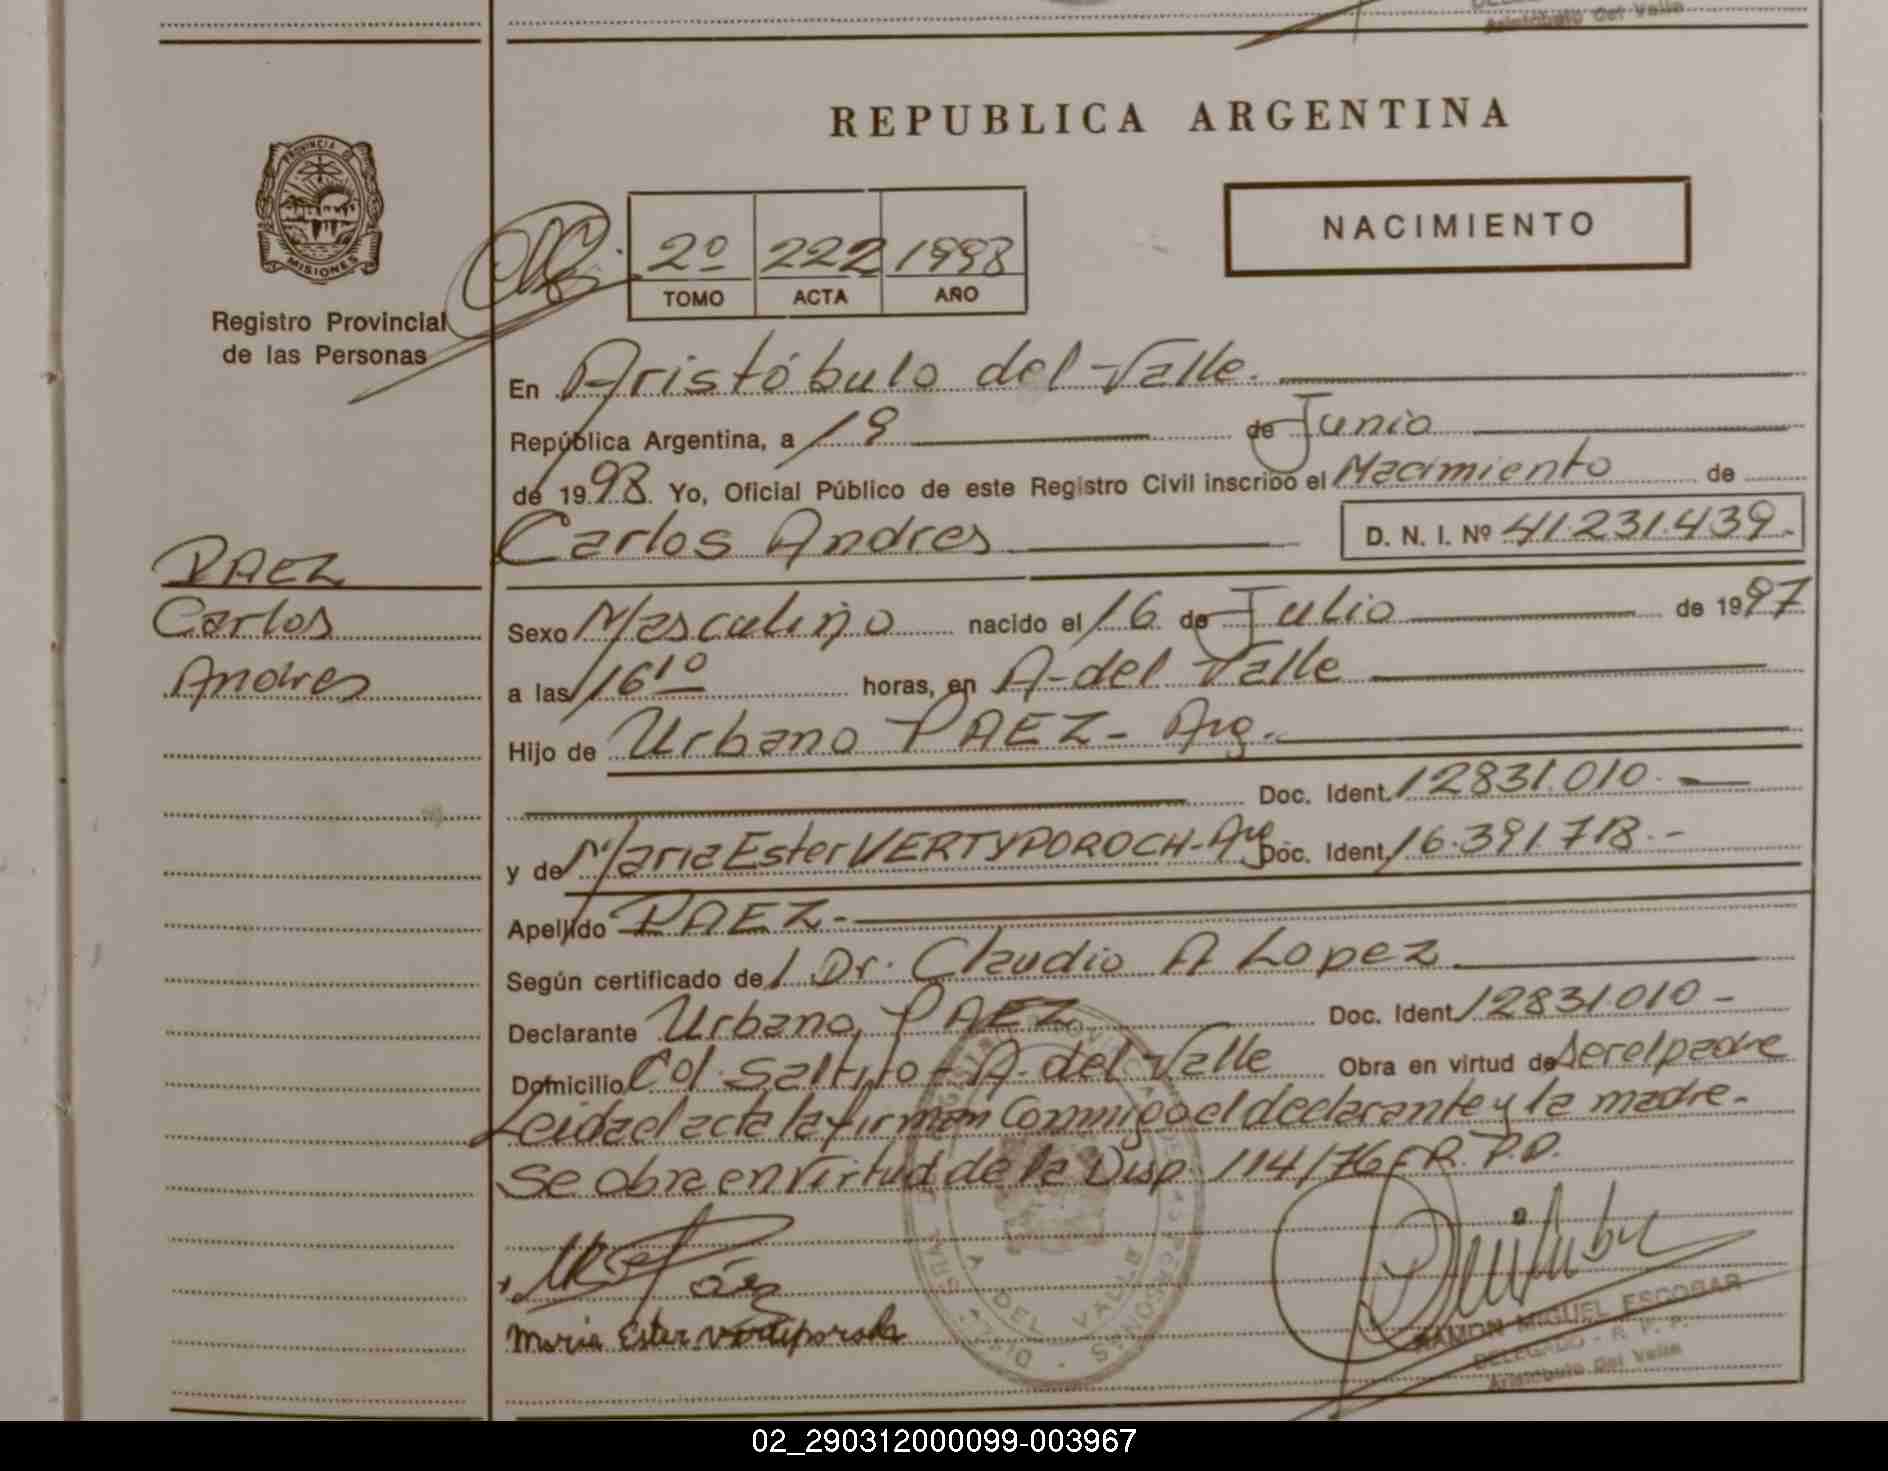 Aristóbulo Del Valle
REPUBLICA ARGENTINA
PROVINCIA DE
MISIONES
Registro Provincial
de las Personas
2º 222 1998
TOMO ACTA AÑO
NACIMIENTO
En Aristóbulo del Valle.
República Argentina, a 19 de Junio
de 1998. Yo, Oficial Público de este Registro Civil inscribo el Nacimiento de
Carlos Andres D. N. I. Nº 41.231.439-
PAEZ
Carlos
Andres
Sexo Masculino nacido el 16 de Julio de 1997
a las 16¹⁰ horas, en A-del Valle
Hijo de Urbano PAEZ- Arg.
Doc. Ident. 12831.010.
y de Maria Ester VERTYPOROCH-Arg Doc. Ident. 16.391.718.-
Apellido PAEZ-
Según certificado de Dr. Claudio A Lopez
Declarante Urbano PAEZ Doc. Ident. 12831.010-
Domicilio Col. Saltito - A-del Valle Obra en virtud de ser el padre
Leida el acta la firman Conmigo el declarante y la madre-
Se obra en virtud de la Disp. 114/76 R.P.P.
Maria Ester
A DEL VALLE
RAMON MIGUEL ESCOBAR
DELEGADO - R. P. P.
Aristóbulo Del Valle
02_290312000099-003967